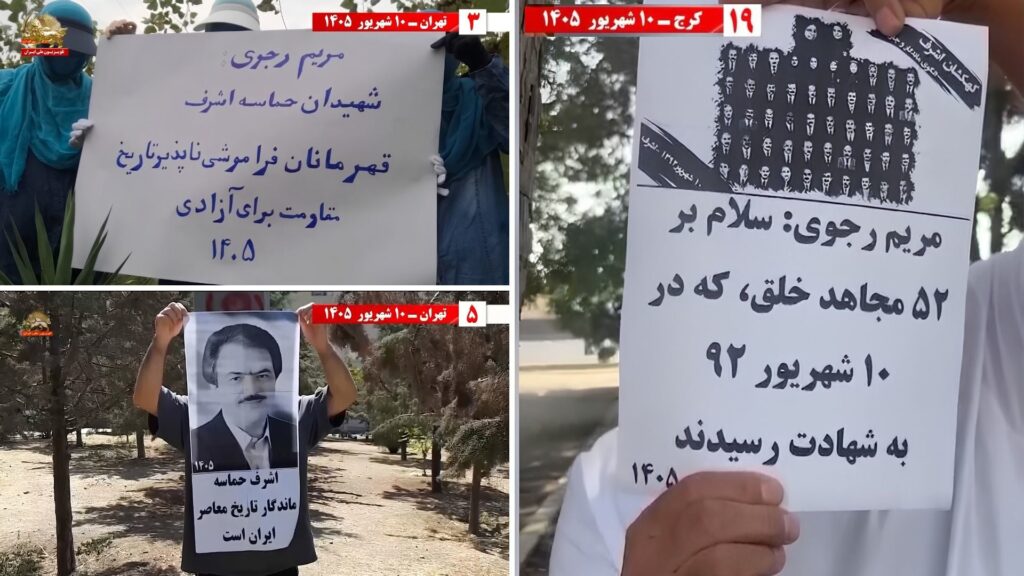 سیمای آزادی
تلویزیون ملی ایران
تهران – ۱۰ شهریور ۱۴۰۵
۳
مریم رجوی:
شهیدان حماسه اشرف
قهرمانان فراموشی ناپذیر تاریخ
مقاومت برای آزادی
۱۴۰۵
تهران – ۱۰ شهریور ۱۴۰۵
۵
۱۴۰۵
اشرف حماسه
ماندگار تاریخ معاصر
ایران است
۱۹
کرج – ۱۰ شهریور ۱۴۰۵
کهکشان اشرف
مریم رجوی: سلام بر
۵۲ مجاهد خلق، که در
۱۰ شهریور ۹۲
به شهادت رسیدند
۱۴۰۵